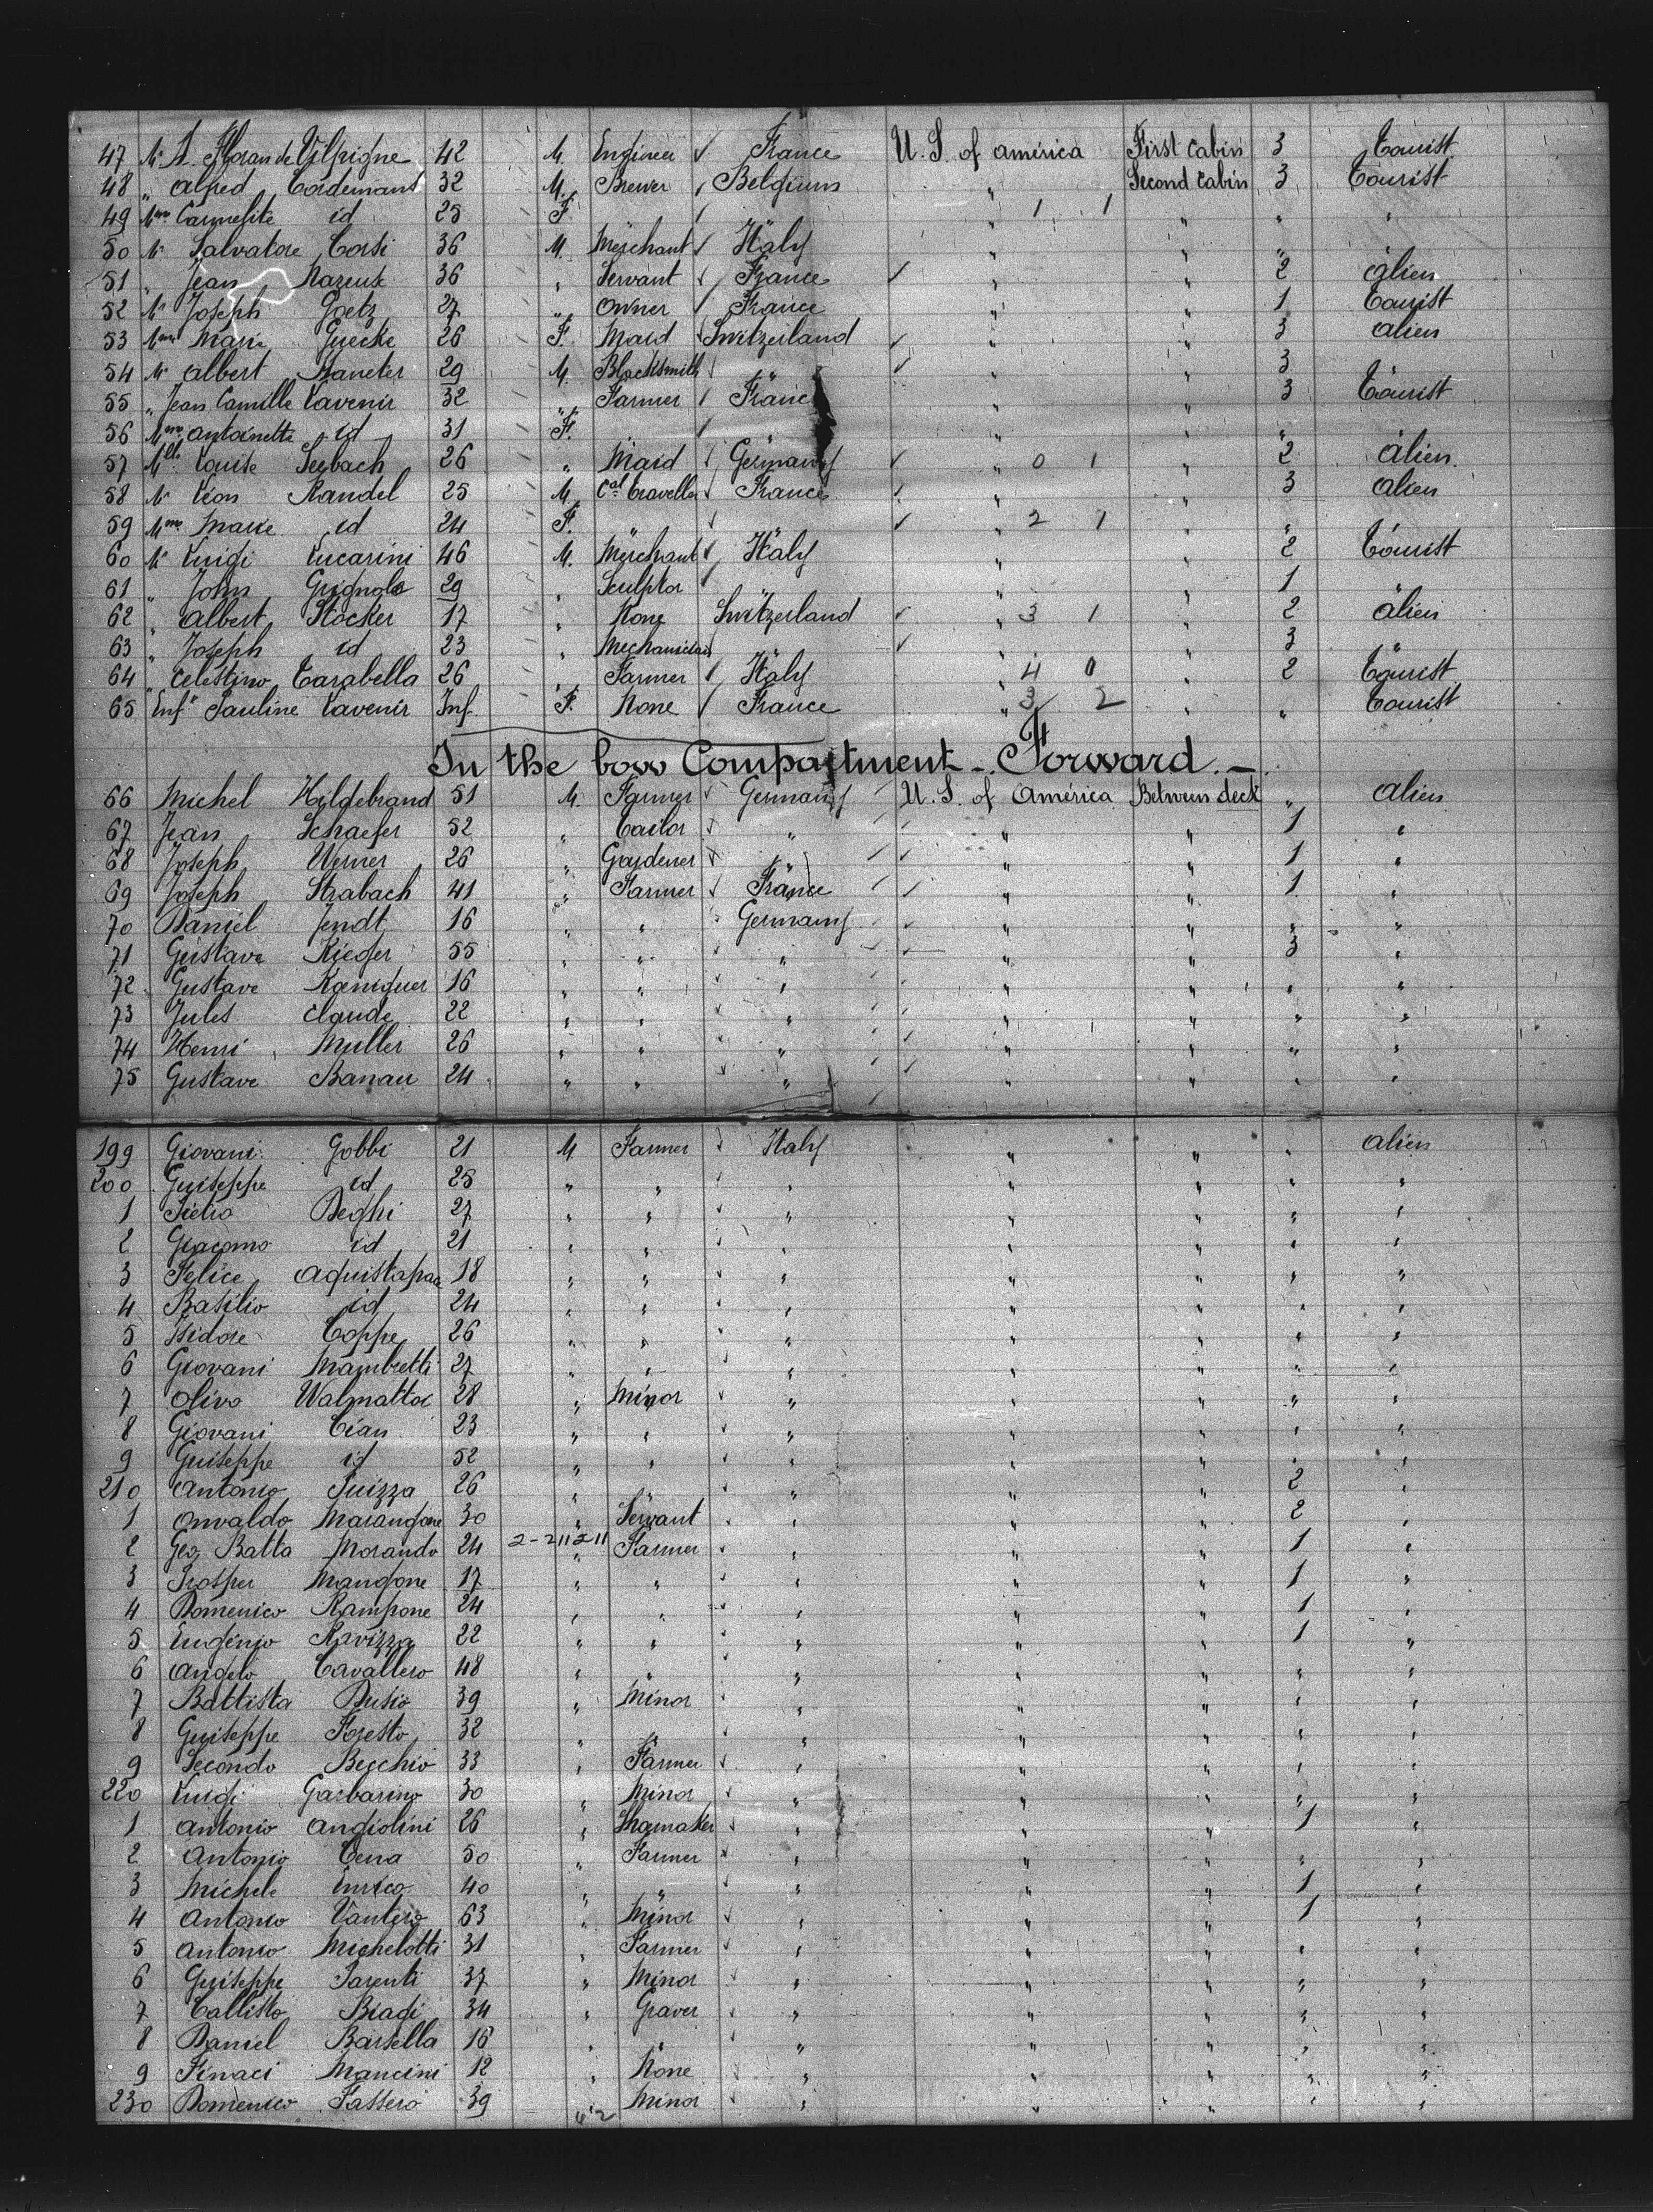 47 Mr A. Floran de Vilpigne 42 M. Engineer ✓ France U. S. of America First Cabin 3 Tourist
48 " Alfred Cordemans 32 M. Brewer Belgium " Second Cabin 3 Tourist
49 Mme Carmelite id 25 F. " 1 1 " " "
50 Mr Salvatore Corsi 36 M. Merchant ✓ Italy " " "
51 " Jean 36 " Servant ✓ France ✓ " " 2 alien
52 Mr Joseph Goetz 27 " owner ✓ France " " 1 Tourist
53 Mme Marie Guecke 26 F. Maid Switzerland ✓ " " 3 alien
54 Mr Albert 29 M. Blacksmith " ✓ " " 3
55 " Jean Camille Lavenir 32 " Farmer France " " 3 Tourist
56 Mme Antoinette id 31 F. " " " "
57 Mlle Louise Seebach 26 " Maid Germany ✓ " 0 1 " 2 alien.
58 Mr Léon Randel 25 M. Cal Traveller France ✓ " " 3 alien
59 Mme Marie id 24 F. " ✓ " 2 1 " " "
60 Mr Luigi Lucarini 46 M. Merchant ✓ Italy " " 2 Tourist
61 " John Grignola 29 " Sculptor " " " 1 "
62 " Albert Stocker 17 " None Switzerland ✓ " 3 1 " 2 alien
63 " Joseph id 23 " Mechanician " ✓ " " 3 "
64 " Celestino Tarabella 26 " Farmer ✓ Italy " 4 0 " 2 Tourist
65 Enft Pauline Lavenir Inf. F. None ✓ France " 3 2 " " Tourist
In the bow Compartment - Forward. -
66 Michel Hildebrand 51 M. Farmer ✓ Germany U. S. of America Between deck " alien
67 Jean Schaefer 52 " Tailor " ✓ " " 1 "
68 Joseph Werner 26 " Gardener " ✓ " " 1 "
69 Joseph Strabach 41 " Farmer ✓ France ✓ " " 1 "
70 Daniel Jendt 16 " " Germany ✓ " " " "
71 Gustave Rieger 55 " " ✓ " ✓ " " 3 "
72 Gustave 16 " " ✓ " ✓ " " " "
73 Jules Claude 22 " " ✓ " ✓ " " " "
74 Henri Muller 26 " " ✓ " ✓ " " " "
75 Gustave Banau 24 " " ✓ " ✓ " " " "
199 Giovani Gobbi 21 M. Farmer ✓ Italy " " " alien
200 Guiseppe id 25 " " ✓ " " " " "
1 Pietro Deghi 27 " " ✓ " " " " "
2 Giacomo id 21 " " ✓ " " " " "
3 Felice Aquistapace 18 " " ✓ " " " " "
4 Basilio id 24 " " ✓ " " " " "
5 Isidore Coppe 26 " " ✓ " " " " "
6 Giovani Mambretti 27 " " ✓ " " " " "
7 Olivo Walmattor 28 " Minor ✓ " " " " "
8 Giovani Cian 23 " " ✓ " " " " "
9 Guiseppe id 52 " " ✓ " " " " "
210 Antonio Puizza 26 " " ✓ " " " 2 "
1 Onvaldo Marangone 30 " Servant ✓ " " " 2 "
2 Geo Batta Morando 24 2-211211 " Farmer ✓ " " " 1 "
3 Prosper Mangone 17 " " ✓ " " " 1 "
4 Domenico Rampone 24 " " ✓ " " " 1 "
5 Eugenio Ravizza 22 " " ✓ " " " 1 "
6 Angelo Cavallero 48 " " ✓ " " " " "
7 Battista Dusio 39 " Minor " " " " "
8 Guiseppe Foresto 32 " " ✓ " " " " "
9 Secondo Becchio 33 " Farmer ✓ " " " " "
220 Luigi Garbarino 30 " Minor ✓ " " " " "
1 Antonio Angiolini 26 " Shomaker ✓ " " " 1 "
2 Antonio Cena 50 " Farmer " " " " "
3 Michele Enrico 40 " " ✓ " " " 1 "
4 Antonio 63 " Minor ✓ " " " 1 "
5 Antonio Michelotti 31 " Farmer ✓ " " " " "
6 Guiseppe Parenti 37 " Minor ✓ " " " " "
7 Callisto Biagi 34 " Graver ✓ " " " " "
8 Daniel Barsella 16 " " ✓ " " " " "
9 Mancini 12 " None ✓ " " " " "
230 Domenico Fassero 39 Minor ✓ " " " " "